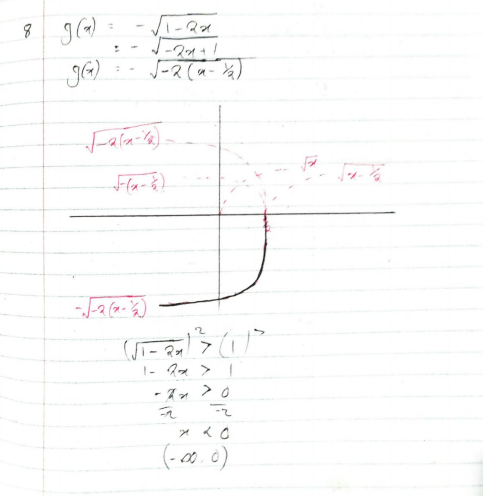 8 g(x) = -√(1-2x)
= -√(-2x+1)
g(x) = -√(-2(x-1/2))
√(-2(x-1/2))
√x
√(-(x-1/2))
√(x-1/2)
-√(-2(x-1/2))
(√(1-2x))² > (1)²
1-2x > 1
-2x > 0
-2 -2
x < 0
(-∞, 0)